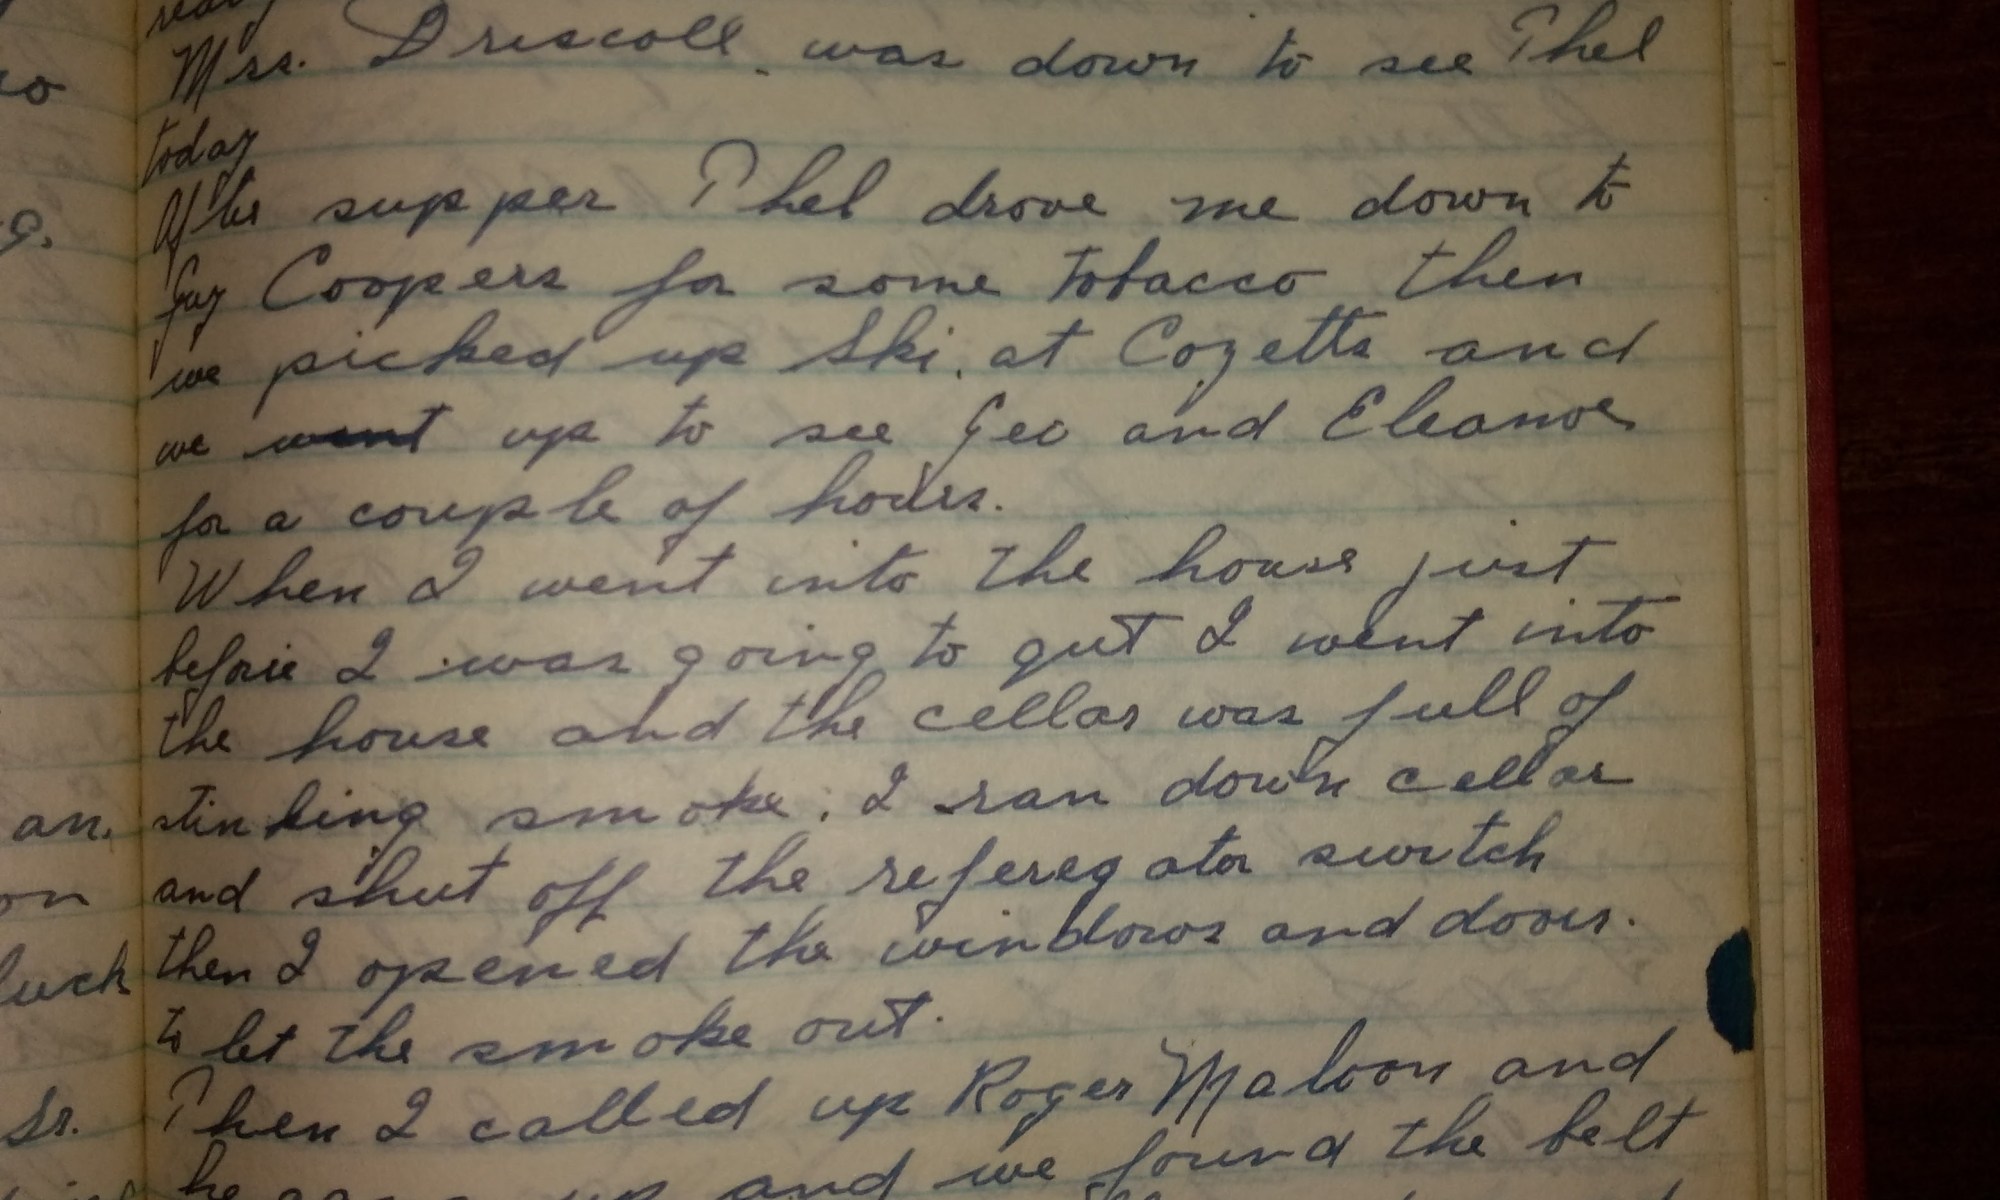 Mrs. Driscoll was down to see Phel
today
After supper Phel drove me down to
Guy Coopers for some tobacco then
we picked up Ski. at Cozetts and
we went up to see Geo and Eleanor
for a couple of hours.
When I went into the house just
before I was going to qut I went into
the house and the cellar was full of
stinking smoke. I ran down cellar
and shut off the referegator switch
then I opened the windows and doors.
to let the smoke out.
Then I called up Roger Maloon and
he came up and we found the belt
an.
on
luck
Sr.